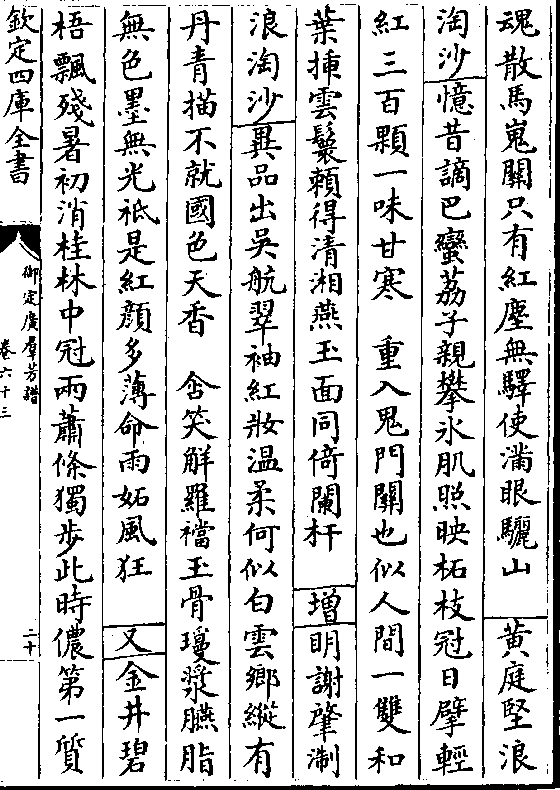 魂散馬嵬關只有紅塵無驛使滿眼驪山　黃庭堅浪
淘沙憶昔謫巴蠻荔子親攀氷肌照映柘枝冠日擘輕
紅三百顆一味甘寒　重入鬼門關也似人間一雙和
葉揷雲鬟賴得清湘燕玉面同倚闌杆　增明謝肇淛
浪淘沙異品出吳航翠袖紅妝温柔何似白雲鄉縱有
丹青描不就國色天香　含笑解羅襠玉骨瓊漿臙脂
無色墨無光祗是紅顔多薄命雨妬風狂　又金井碧
梧飄殘暑初消桂林中冠兩蕭條獨步此時儂第一質
欽定四庫全書
御定廣羣芳譜
卷六十三
二十